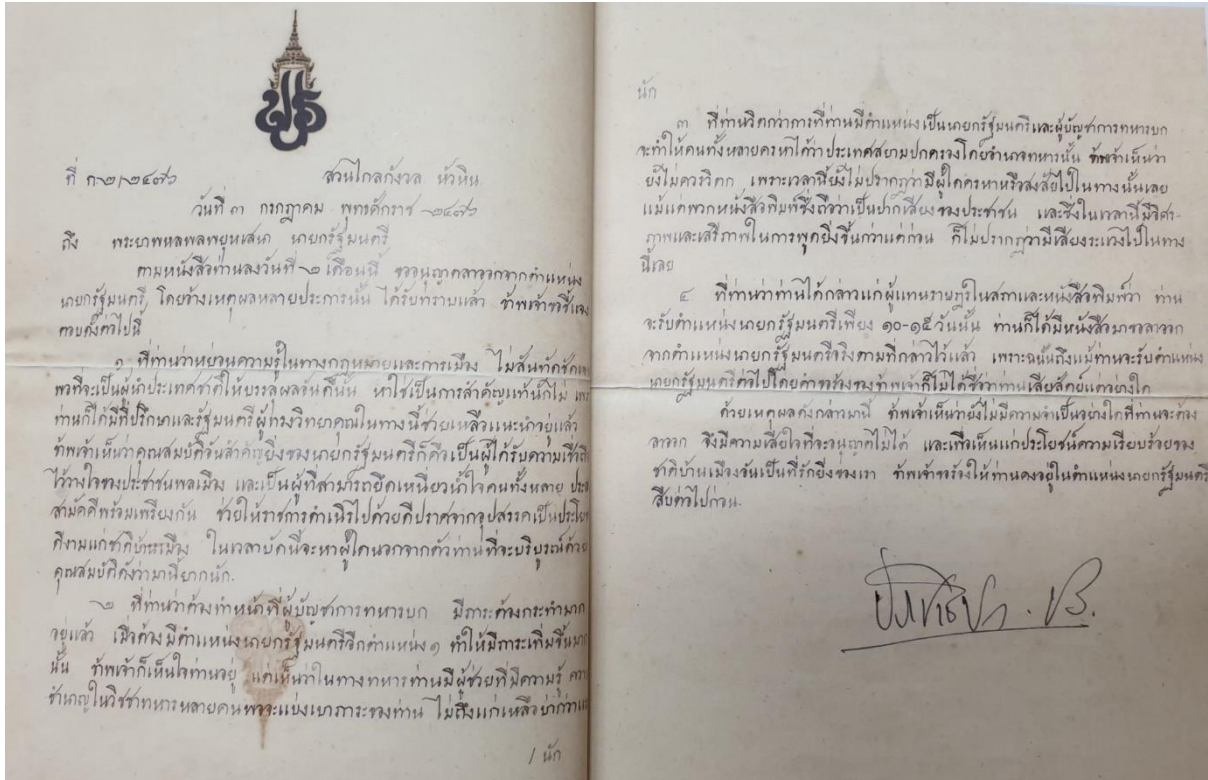 ที่ ก๒/๒๔๗๖ สวนไกลกังวล หัวหิน
วันที่ ๓ กรกฎาคม พุทธศักราช ๒๔๗๖
ถึง พระยาพหลพลพยุหเสนา นายกรัฐมนตรี
ตามหนังสือท่านลงวันที่ ๒ เดือนนี้ ขออนุญาตลาออกจากตำแหน่ง
นายกรัฐมนตรี, โดยอ้างเหตุผลหลายประการนั้น ได้รับทราบแล้ว ข้าพเจ้าขอชี้แจง
ตอบดังต่อไปนี้
๑ ที่ท่านว่าหย่อนความรู้ในทางกฎหมายและการเมือง ไม่สันทัดชัดเจน
พอที่จะเป็นผู้นำประเทศชาติให้บรรลุผลอันดีนั้น หาใช่เป็นการสำคัญแท้นักไม่ เพราะ
ท่านก็ได้มีที่ปรึกษาและรัฐมนตรีผู้ทรงวิทยาคุณในทางนี้ช่วยเหลือแนะนำอยู่แล้ว
ข้าพเจ้าเห็นว่าคุณสมบัติอันสำคัญยิ่งของนายกรัฐมนตรีก็คือเป็นผู้ได้รับความเชื่อถือ
ไว้วางใจของประชาชนพลเมือง และเป็นผู้ที่สามารถยึดเหนี่ยวน้ำใจคนทั้งหลาย
สามัคคีพร้อมเพรียงกัน ช่วยให้ราชการดำเนิรไปด้วยดีปราศจากอุปสรรคเป็นประโยชน์
ดีงามแก่ชาติบ้านเมือง ในเวลาบัดนี้จะหาผู้ใดนอกจากตัวท่านที่จะบริบูรณ์ด้วย
คุณสมบัติดังว่ามานี้ยากนัก.
๒ ที่ท่านว่าต้องทำหน้าที่ผู้บัญชาการทหารบก มีภาระต้องกระทำมาก
อยู่แล้ว เมื่อต้องมีตำแหน่งนายกรัฐมนตรีอีกตำแหน่ง ๑ ทำให้มีภาระเพิ่มขึ้นมาก
นั้น ข้าพเจ้าก็เห็นใจท่านอยู่ แต่เห็นว่าในทางทหารท่านมีผู้ช่วยที่มีความรู้ ความ
ชำนาญในวิชชาทหารหลายคนพอจะแบ่งเบาภาระของท่าน ไม่ถึงแก่เหลือบ่ากว่าแรง
/ นัก
นัก
๓ ที่ท่านวิตกว่าการที่ท่านมีตำแหน่งเป็นนายกรัฐมนตรีและผู้บัญชาการทหารบก
จะทำให้คนทั้งหลายครหาได้ว่าประเทศสยามปกครองโดยอำนาจทหารนั้น ข้าพเจ้าเห็นว่า
ยังไม่ควรวิตก เพราะเวลานี้ยังไม่ปรากฏว่ามีผู้ใดครหาหรือสงสัยไปในทางนั้นเลย
แม้แต่พวกหนังสือพิมพ์ซึ่งถือว่าเป็นปากเสียงของประชาชน และซึ่งในเวลานี้มีอิศร-
ภาพและเสรีภาพในการพูดยิ่งขึ้นกว่าแต่ก่อน ก็ไม่ปรากฏว่ามีเสียงระแวงไปในทาง
นี้เลย
๔ ที่ท่านว่าท่านได้กล่าวแก่ผู้แทนราษฎรในสภาและหนังสือพิมพ์ว่า ท่าน
จะรับตำแหน่งนายกรัฐมนตรีเพียง ๑๐-๑๕ วันนั้น ท่านก็ได้มีหนังสือมาขอลาออก
จากตำแหน่งนายกรัฐมนตรีจริงตามที่กล่าวไว้แล้ว เพราะฉะนั้นถึงแม้ท่านจะรับตำแหน่ง
นายกรัฐมนตรีต่อไปโดยคำขอร้องของข้าพเจ้าก็ไม่ได้ชื่อว่าท่านเสียสัตย์แต่อย่างใด
ด้วยเหตุผลดังกล่าวมานี้ ข้าพเจ้าเห็นว่ายังไม่มีความจำเป็นอย่างใดที่ท่านจะต้อง
ลาออก จึงมีความเสียใจที่จะอนุญาตไม่ได้ และเพื่อเห็นแก่ประโยชน์ความเรียบร้อยของ
ชาติบ้านเมืองอันเป็นที่รักยิ่งของเรา ข้าพเจ้าขอร้องให้ท่านคงอยู่ในตำแหน่งนายกรัฐมนตรี
สืบต่อไปก่อน.
ประชาธิปก. ปร.